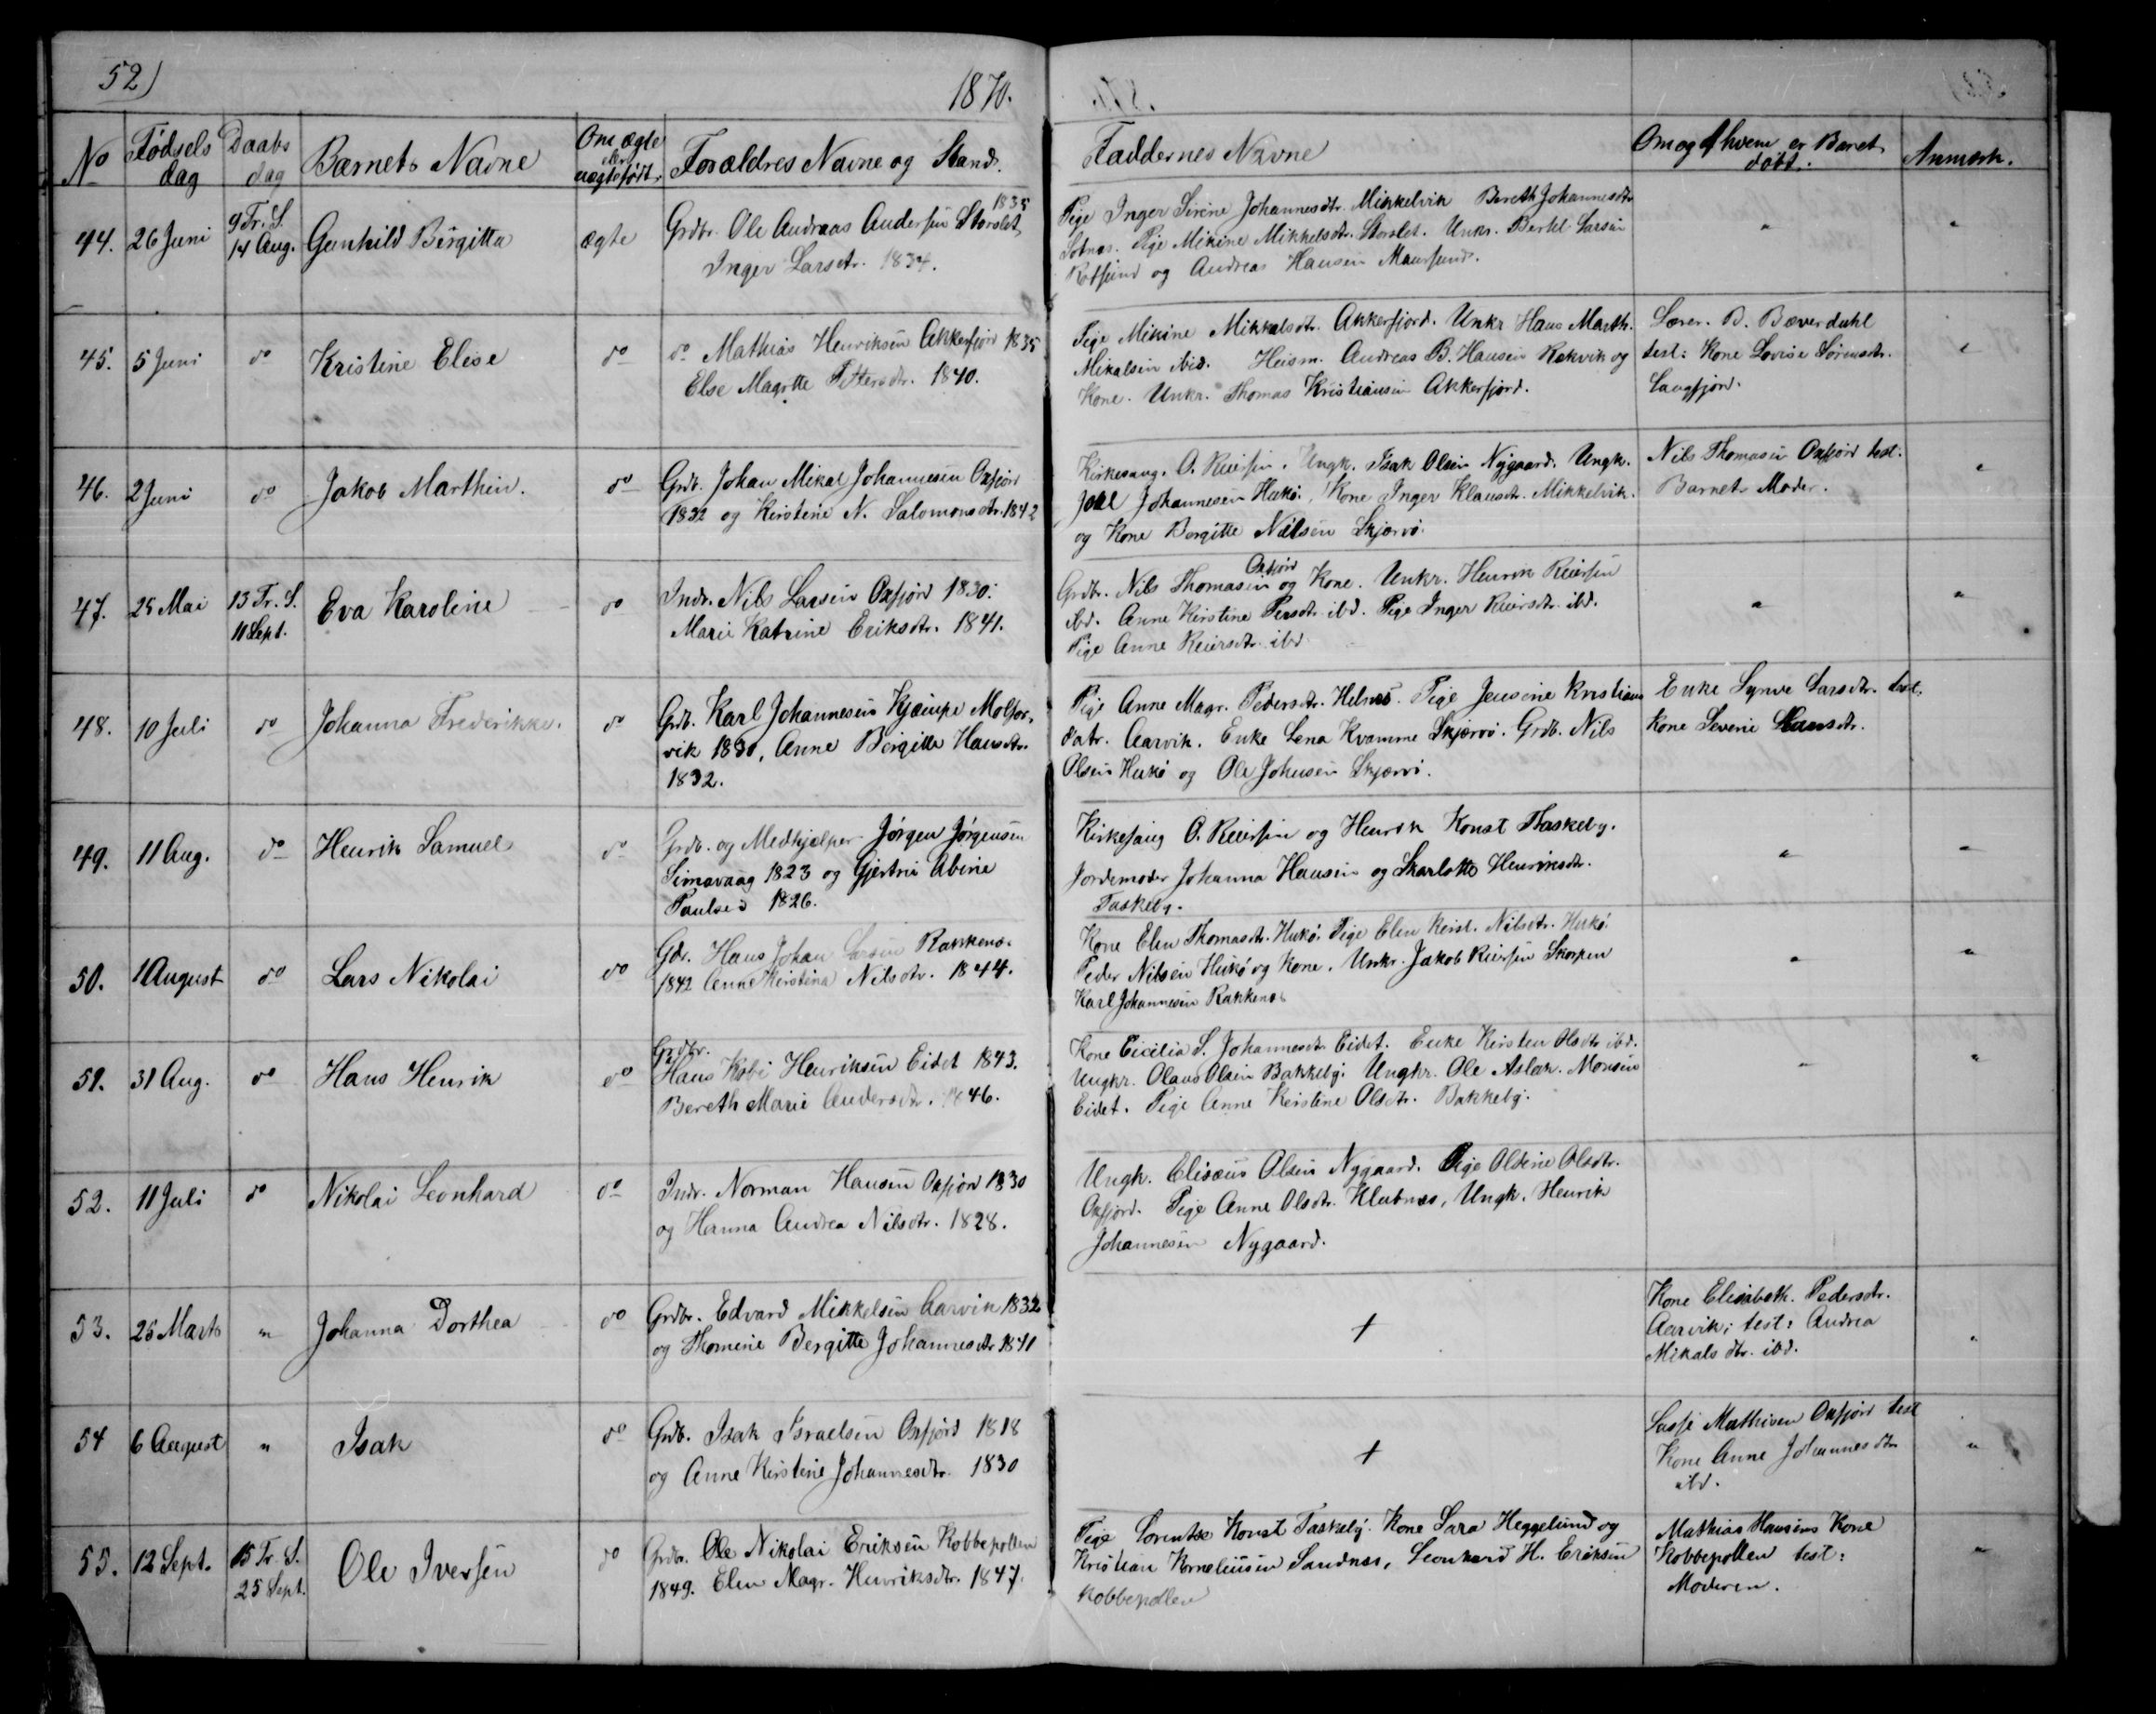 52)
1870.
No
Fødsels
dag
Daabs
dag
Barnets Navne
Om ægte
eller
uægte født.
Forældres Navne og Stand.
Faddernes Navne
Om og af hvem er Barnet
døbt.
Anmærk.
44. 26 Juni
9 Tr. S.
14 Aug.
Gunhild Bergitta
ægte
Grdbr. Ole Andreas Andersen Storslet 1835
Inger Larsdtr. 1834.
Pige Inger Sirine Johannesdtr. Mikkelvik Bereth Johannesdtr
Sotnæs. Pige Mikine Mikkelsdtr. Storslet. Unkr. Bertel Larsen
Rotsund og Andreas Hansen Maursund.
45. 5 Juni
do
Kristine Elise
do
do Mathias Henriksen Akkerfjord 1835
Else Magrtte Pettersdtr. 1840.
Pige Mikine Mikkalsdtr. Akkerfjord. Unkr Hans Marth.
Mikalsen ibid. Heism. Andreas B. Hansen Rekvik og
Kone. Unkr. Thomas Kristiansen Akkerfjord.
Lærer. B. Bæverdahl
test: Kone Lovise Sørensdtr.
Langfjord.
46. 2 Juni
do
Jakob Marthin.
do
Grdb. Johan Mikal Johannesen Oxfjord
1832 og Kirstine N. Salomonsdtr. 1842
Kirkesang. O. Reiersen. Ungk. Isak Olsen Nygaard. Ungk.
Joel Johannesen Hukø. Kone Inger Klausdtr. Mikkelvik.
og Kone Bergitte Nilsen Skjærvø.
Nils Thomasen Oxfjord test.
Barnets Moder.
47. 25 Mai
13 Tr. S.
11 Sept.
Eva Karoline
do
Indr. Nils Larsen Oxfjord 1830.
Marie Katrine Eriksdtr. 1841.
Grdbr. Nils Thomasen Oxfjord og Kone. Unkr. Henrik Reiersen
ibd. Anne Kirstine Persdtr. ibd. Pige Inger Reiersdtr. ibd.
Pige Anne Reiersdtr. ibd
48. 10 Juli
do
Johanna Frederikke.
do
Grdb. Karl Johannesen Kjæmpe Molfor-
vik 1830, Anne Bergitta Hansdtr.
1832.
Pige Anne Magr. Pedersdtr. Helnæs. Pige Jensine Kristians
datr. Aarvik. Enke Lena Kvamme Skjærvø. Grdb. Nils
Olsen Hukø og Ole Johnsen Skjærvø.
Enke Synve Larsdtr. test.
Kone Severine Hansdtr.
49. 11 Aug.
do
Henrik Samuel
do
Grdb. og Medhjælper Jørgen Jørgensen
Simavaag 1823 og Gjertrie Abine
Paulsen 1826.
Kirkesang O. Reiersen og Henrik Konst Taskeby.
Jordemoder Johanna Hansen og Skarlotte Henriksdtr.
Taskeby.
50. 1 August
do
Lars Nikolai
do
Gdr. Hans Johan Larsen Rakkenæs
1842 Anne Kirstina Nilsdtr. 1844.
Kone Elen Thomasdtr. Hukø. Pige Elen Kirst. Nilsdtr. Hukø.
Peder Nilsen Hukø og Kone. Unkr. Jakob Reiersen Skorpen
Karl Johannesen Rakkenæs
51. 31 Aug.
do
Hans Henrik
do
Grdbr.
Hans Henriksen Eidet 1843.
Bereth Marie Andersdtr. 1846.
Kone Cicilia S. Johannesdtr. Eidet. Enke Kirsten Olsdtr. ibd.
Ungkr. Olaus Olsen Bakkeby. Ungkr. Ole Aslak. Monsen
Eidet. Pige Anne Kerstine Olsdtr. Bakkeby.
52. 11 Juli
do
Nikolai Leonhard
do
Indr. Norman Hansen Oxfjord 1830
og Hanna Andrea Nilsdtr. 1828.
Ungk. Elisæus Olsen Nygaard. Pige Olsine Olsdtr.
Oxfjord. Pige Anne Olsdtr. Klubnæs, Ungk. Henrik
Johannesen Nygaard.
53. 25 Marts
"
Johanna Dorthea
do
Grdbr. Edvard Mikkelsen Aarvik 1832
og Thomine Bergitte Johannesdtr 1841
+
Kone Elisabeth. Pedersdtr.
Aarvik; test: Andrea
Mikalsdtr. ibd.
54 6 August
"
Isak
do
Grdb. Isak Israelsen Oxfjord 1818
og Anne Kirstine Johannesdtr. 1830
+
Mathisen Oxfjord test
Kone Anne Johannesdtr
ibd.
55. 12 Sept.
15 Tr. S.
25 Sept.
Ole Iversen
do
Grdbr. Ole Nikolai Eriksen Kobbepollen
1849. Elen Magr. Henriksdtr. 1847.
Pige Lorentse Konst Taskeby. Kone Sara Heggelund og
Kristian Korneliussen Sandnæs, Leonhard H. Eriksen
Kobbepollen
Mathias Hansens Kone
Kobbepollen test:
Moderen.